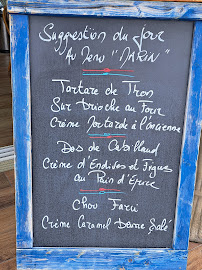 Suggestion du Jour
Au Menu "MARIN"
Tartare de Thon
Sur brioche au Four
Crème Moutarde à l'ancienne
Dos de Cabillaud
Crème d'Endives et Figues
au Pain d'Epice
Chou Farci
Crème Caramel Beurre Salé